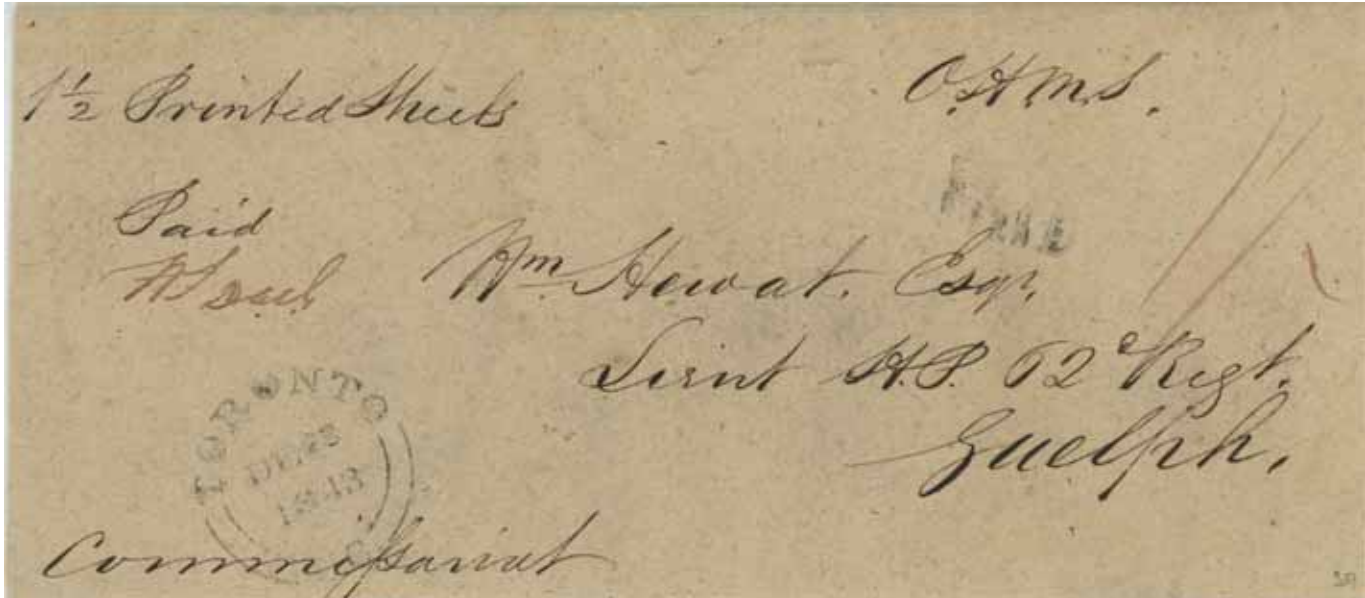 1½ Printed Sheets
O.H.M.S.
Paid
Wm Howat. Esqr.
Lieut H.P. 62d Regt.
Guelph.
TORONTO
1843
Commissariat